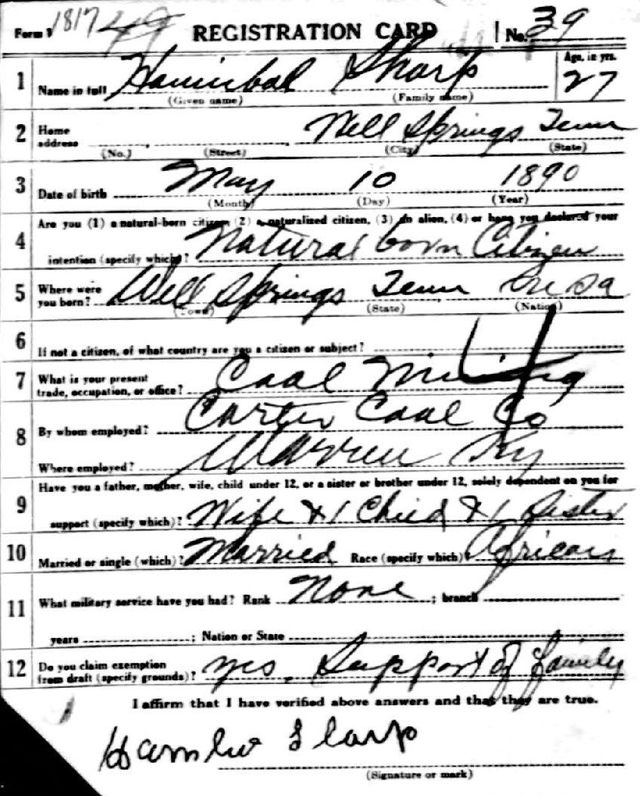 Form 1 1817 49 REGISTRATION CARD No. 39
1 Name in full Hannibal Sharp Age, in yrs. 27
(Given name) (Family name)
2 Home address Well Springs Tenn
(No.) (Street) (City) (State)
3 Date of birth May 10 1890
(Month) (Day) (Year)
4 Are you (1) a natural-born citizen, (2) a naturalized citizen, (3) an alien, (4) or have you declared your
intention (specify which)? Natural born Citizen
5 Where were you born? Well Springs Tenn
(Town) (State) (Nation)
6 If not a citizen, of what country are you a citizen or subject?
7 What is your present trade, occupation, or office? Coal Mining
8 By whom employed? Carter Coal Co
Where employed? Warren Ky
9 Have you a father, mother, wife, child under 12, or a sister or brother under 12, solely dependent on you for
support (specify which)? Wife & 1 Child & 1 Sister
10 Married or single (which)? Married Race (specify which)? African
11 What military service have you had? Rank None ; branch
years ; Nation or State
12 Do you claim exemption from draft (specify grounds)? yes. Support of family
I affirm that I have verified above answers and that they are true.
Sharp
(Signature or mark)